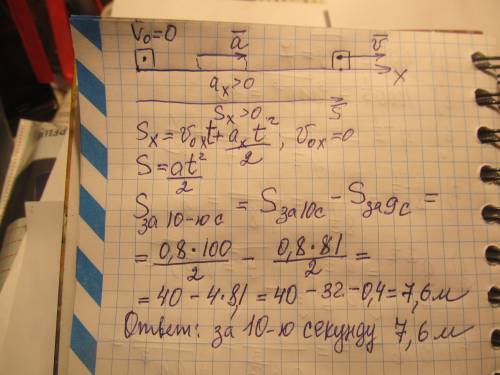 V₀=0
a̅ v̅
aₓ>0 x
Sₓ>0 S̅
Sₓ=v₀ₓt+aₓt²/2, v₀ₓ=0
S=at²/2
S за 10-ю с = S за 10с − S за 9с =
= 0,8·100/2 − 0,8·81/2 =
= 40 − 4·81 = 40 − 32 − 0,4 = 7,6 м
Ответ: за 10-ю секунду 7,6 м